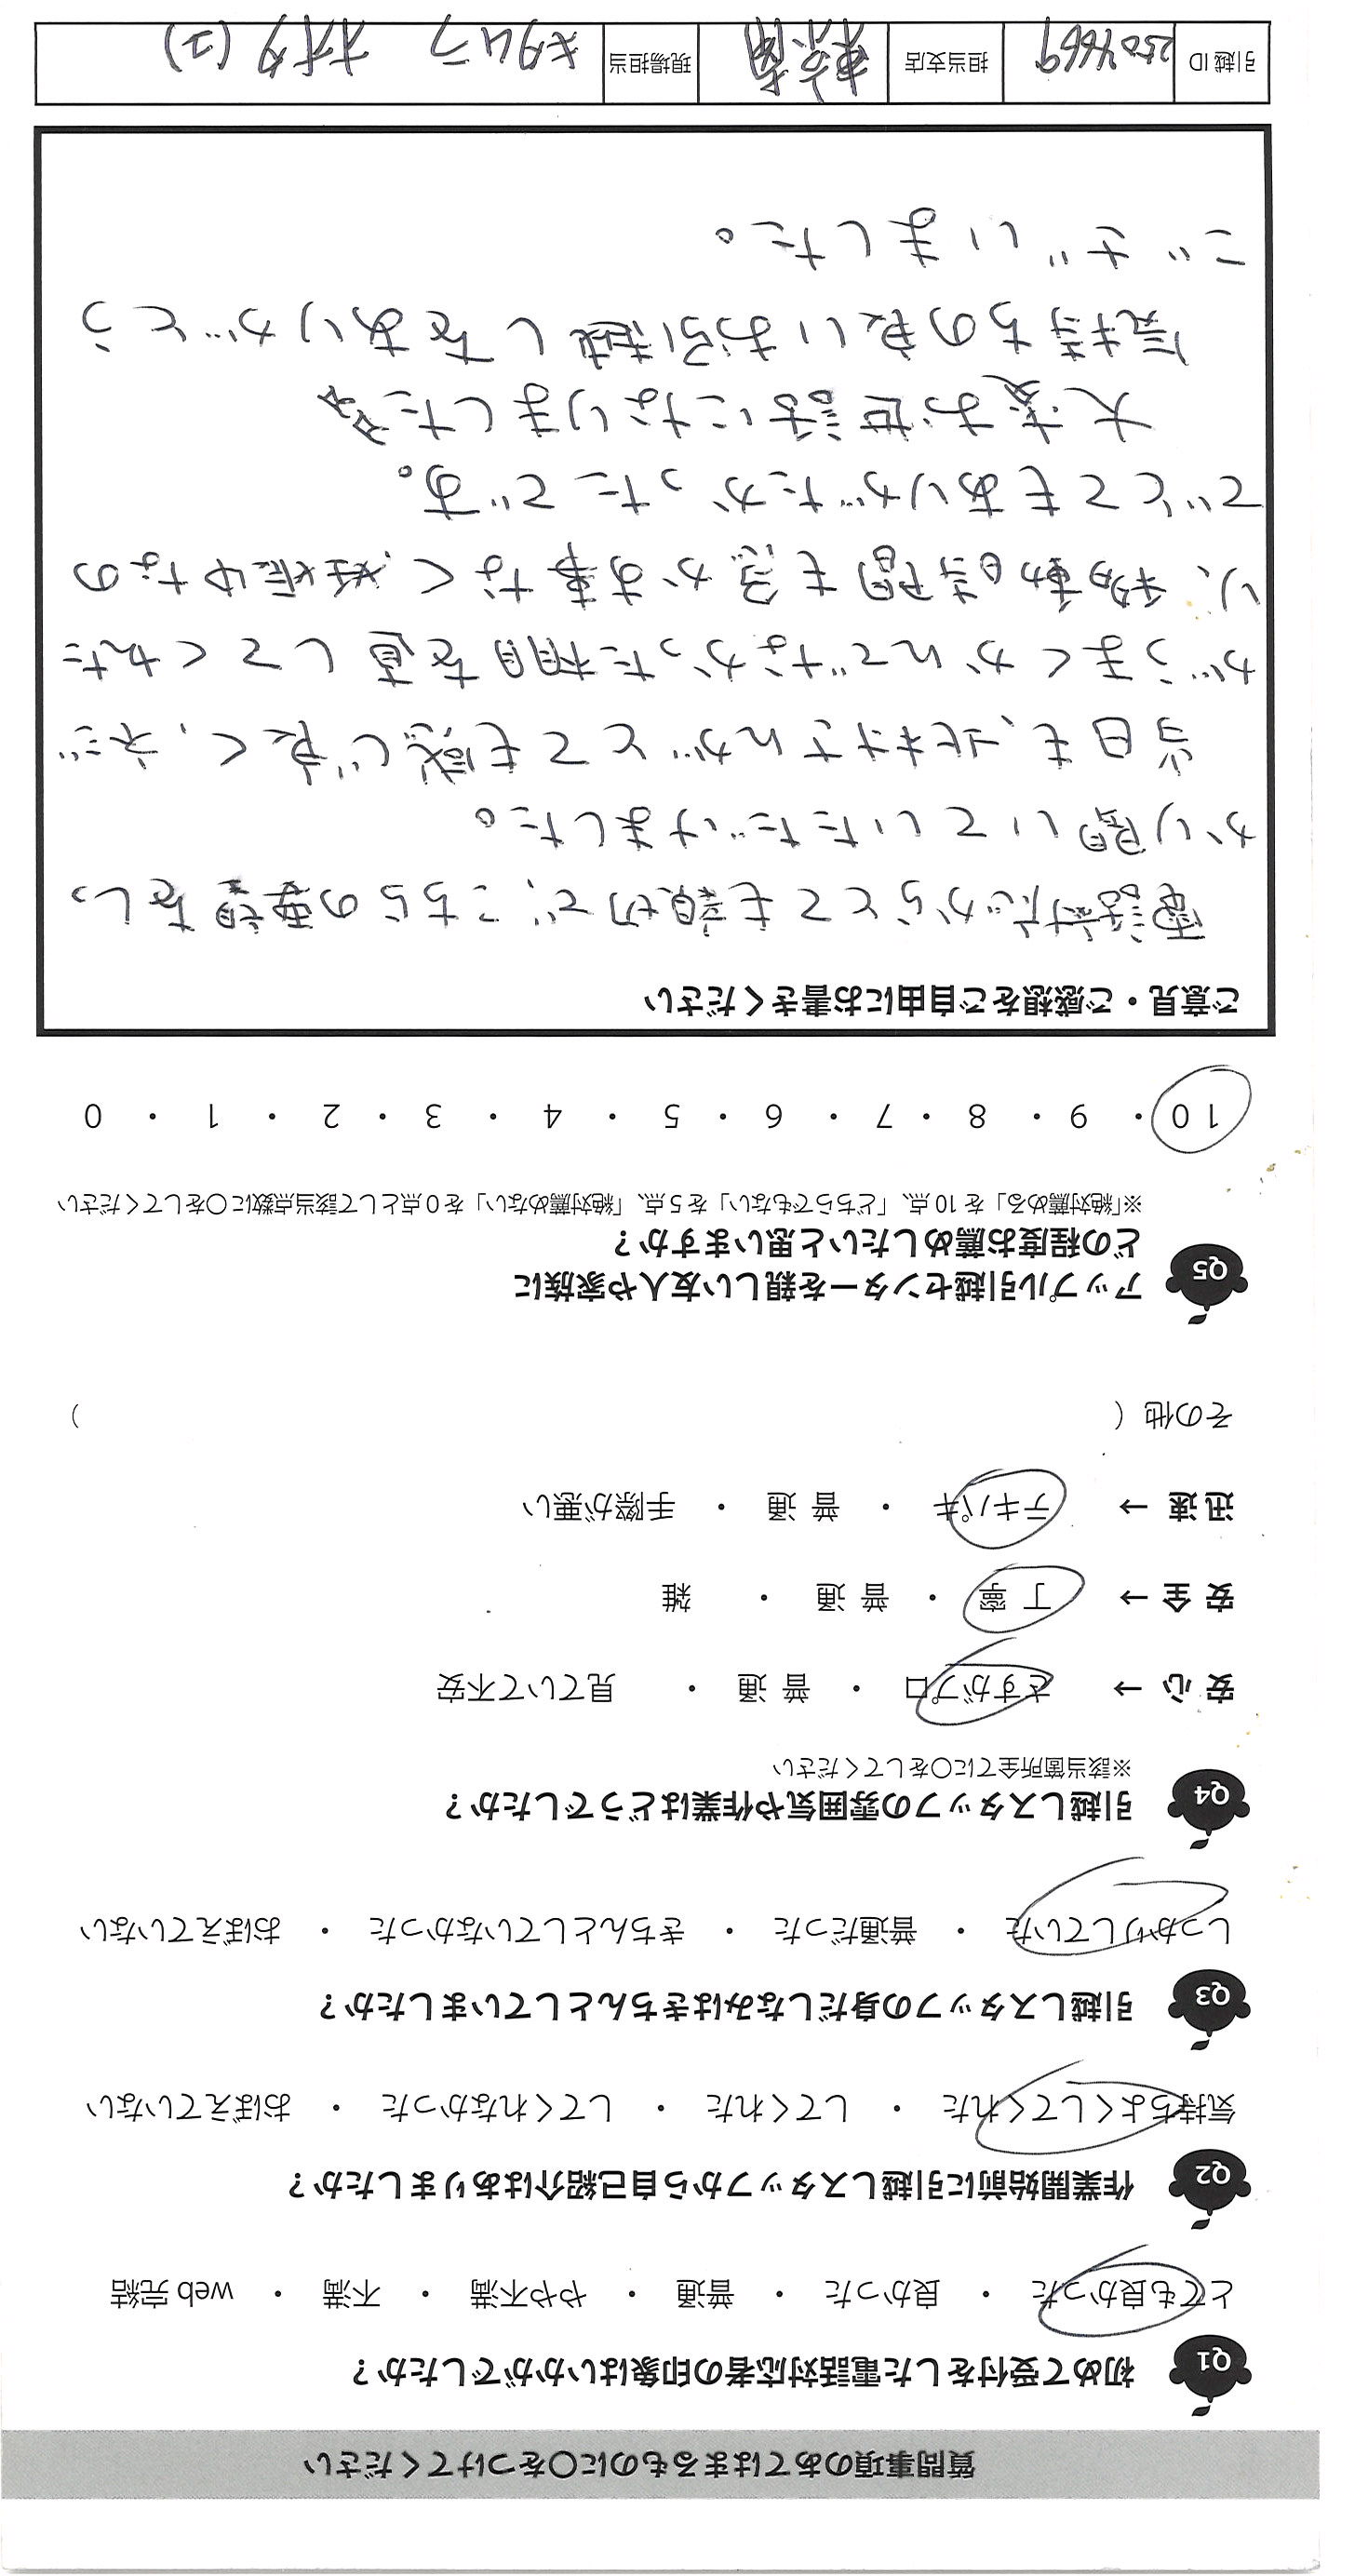 質問事項のあてはまるものに〇をつけてください
Q1 初めて受付をした電話対応者の印象はいかがでしたか？
とても良かった ・ 良かった ・ 普通 ・ やや不満 ・ 不満 ・ web 完結
Q2 作業開始前に引越しスタッフから自己紹介はありましたか？
気持ちよくしてくれた ・ してくれた ・ してくれなかった ・ おぼえていない
Q3 引越しスタッフの身だしなみはきちんとしていましたか？
しっかりしていた ・ 普通だった ・ きちんとしていなかった ・ おぼえていない
Q4 引越しスタッフの雰囲気や作業はどうでしたか？
※該当箇所全てに〇をしてください
安 心 → さすがプロ ・ 普 通 ・ 見ていて不安
安 全 → 丁 寧 ・ 普 通 ・ 雑
迅 速 → テキパキ ・ 普 通 ・ 手際が悪い
その他（ ）
Q5 アップル引越センターを親しい友人や家族に
どの程度お薦めしたいと思いますか？
※「絶対薦める」を 10 点、「どちらでもない」を 5 点、「絶対薦めない」を 0 点として該当点数に〇をしてください
10 ・ 9 ・ 8 ・ 7 ・ 6 ・ 5 ・ 4 ・ 3 ・ 2 ・ 1 ・ 0
ご意見・ご感想をご自由にお書きください
電話対応からとても親切で、こちらの要望をしっ
かり聞いていただけました。
当日も、北村さんがとても感じ良く、ネジ
がうまくかんでなかった棚を直してくれた
り、移動時間も急かす事なく、妊娠中なの
でとてもありがたかったです。
大変お世話になりました
気持ちの良いお引越しをありがとう
ございました。
引越 ID 2504669 担当支店 東京南 現場担当 キタムラ オオタ(ユ)